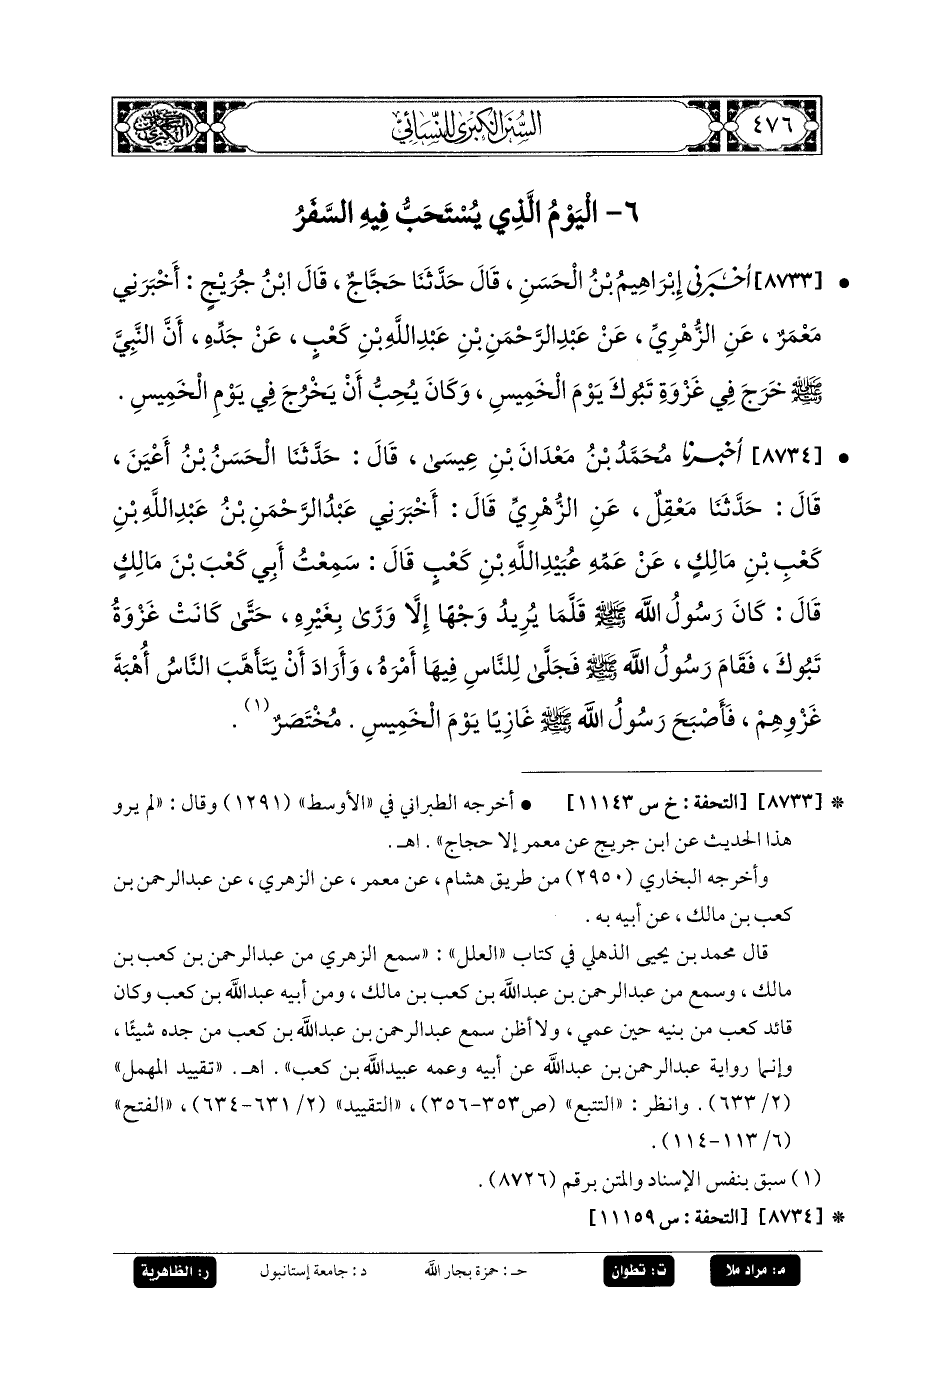 ٤٧٦
السُّنَنُ الكُبْرَى لِلنَّسَائِيِّ
٦- الْيَوْمُ الَّذِي يُسْتَحَبُّ فِيهِ السَّفَرُ
• [٨٧٣٣] أَخْبَرَنِي إِبْرَاهِيمُ بْنُ الْحَسَنِ ، قَالَ حَدَّثَنَا حَجَّاجٌ ، قَالَ ابْنُ جُرَيْجٍ : أَخْبَرَنِي
مَعْمَرٌ ، عَنِ الزُّهْرِيِّ ، عَنْ عَبْدِالرَّحْمَنِ بْنِ عَبْدِاللَّهِ بْنِ كَعْبٍ ، عَنْ جَدِّهِ ، أَنَّ النَّبِيَّ
ﷺ خَرَجَ فِي غَزْوَةِ تَبُوكَ يَوْمَ الْخَمِيسِ ، وَكَانَ يُحِبُّ أَنْ يَخْرُجَ فِي يَوْمِ الْخَمِيسِ .
• [٨٧٣٤] أَخْبَرَنَا مُحَمَّدُ بْنُ مَعْدَانَ بْنِ عِيسَىٰ ، قَالَ : حَدَّثَنَا الْحَسَنُ بْنُ أَعْيَنَ ،
قَالَ : حَدَّثَنَا مَعْقِلٌ ، عَنِ الزُّهْرِيِّ قَالَ : أَخْبَرَنِي عَبْدُالرَّحْمَنِ بْنُ عَبْدِاللَّهِ بْنِ
كَعْبِ بْنِ مَالِكٍ ، عَنْ عَمِّهِ عُبَيْدِاللَّهِ بْنِ كَعْبٍ قَالَ : سَمِعْتُ أَبِي كَعْبَ بْنَ مَالِكٍ
قَالَ : كَانَ رَسُولُ اللَّه ﷺ قَلَّمَا يُرِيدُ وَجْهًا إِلَّا وَرَّىٰ بِغَيْرِهِ ، حَتَّىٰ كَانَتْ غَزْوَةُ
تَبُوكَ ، فَقَامَ رَسُولُ اللَّه ﷺ فَجَلَّىٰ لِلنَّاسِ فِيهَا أَمْرَهُ ، وَأَرَادَ أَنْ يَتَأَهَّبَ النَّاسُ أُهْبَةَ
غَزْوِهِمْ ، فَأَصْبَحَ رَسُولُ اللَّه ﷺ غَازِيًا يَوْمَ الْخَمِيسِ . مُخْتَصَرٌ (١) .
* [٨٧٣٣] [التحفة : خ س ١١١٤٣] • أخرجه الطبراني في «الأوسط» (١٢٩١) وقال : «لم يرو
هذا الحديث عن ابن جريج عن معمر إلا حجاج» . اهـ .
وأخرجه البخاري (٢٩٥٠) من طريق هشام ، عن معمر ، عن الزهري ، عن عبدالرحمن بن
كعب بن مالك ، عن أبيه به .
قال محمد بن يحيى الذهلي في كتاب «العلل» : «سمع الزهري من عبدالرحمن بن كعب بن
مالك ، وسمع من عبدالرحمن بن عبدالله بن كعب بن مالك ، ومن أبيه عبدالله بن كعب وكان
قائد كعب من بنيه حين عمي ، ولا أظن سمع عبدالرحمن بن عبدالله بن كعب من جده شيئًا ،
وإنما رواية عبدالرحمن بن عبدالله عن أبيه وعمه عبيدالله بن كعب» . اهـ . «تقييد المهمل»
(٢/ ٦٣٣) . وانظر : «التتبع» (ص٣٥٣-٣٥٦) ، «التقييد» (٢/ ٦٣١-٦٣٤) ، «الفتح»
(٦/ ١١٣-١١٤) .
(١) سبق بنفس الإسناد والمتن برقم (٨٧٢٦) .
* [٨٧٣٤] [التحفة : س ١١١٥٩]
م: مراد ملا ت: تطوان حـ : حمزة بجار الله د : جامعة إستانبول ر: الظاهرية